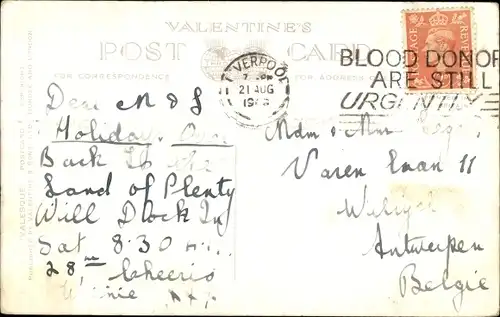 VALENTINE'S
POST CARD
FOR CORRESPONDENCE
FOR ADDRESS
LIVERPOOL
21 AUG
BLOOD DONOR
ARE STILL
URGENTLY
POSTAGE REVENUE
Dear M & J
Holiday Over
Back To the
Land of Plenty
Will Dock In
Sat 8.30
28, Cheerio
Mdm & Mnr
Varen Laan 11
Antwerpen
Belgie